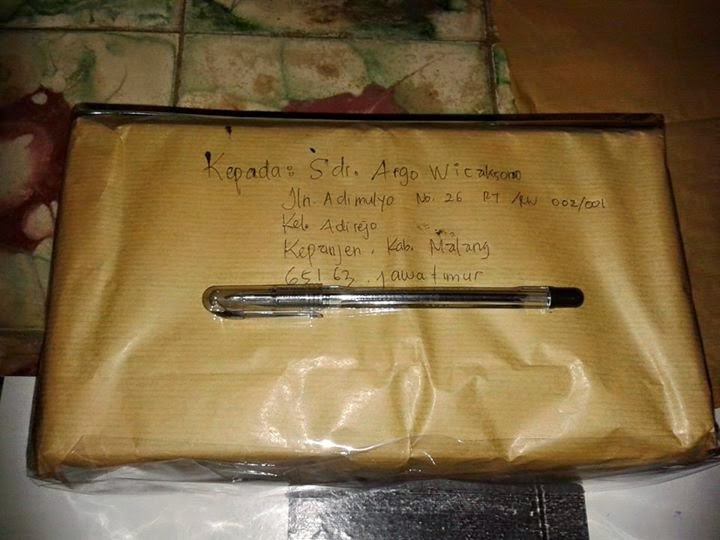 Kepada: Sdr. Argo Wicaksono
Jln. Adimulyo No. 26 RT /RW 002/001
Kel. Adirejo
Kepanjen. Kab. Malang
65163. Jawa timur